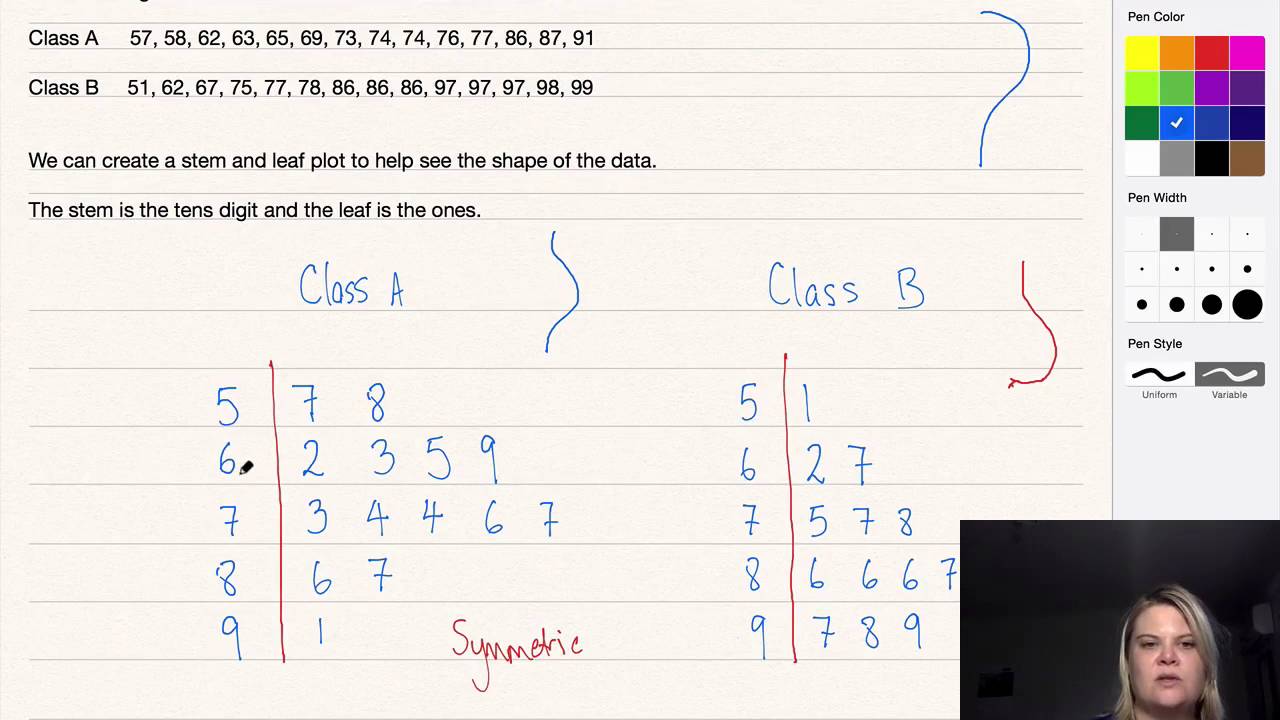 Class A 57, 58, 62, 63, 65, 69, 73, 74, 74, 76, 77, 86, 87, 91
Class B 51, 62, 67, 75, 77, 78, 86, 86, 86, 97, 97, 97, 98, 99
We can create a stem and leaf plot to help see the shape of the data.
The stem is the tens digit and the leaf is the ones.
Class A
5 7 8
6 2 3 5 9
7 3 4 4 6 7
8 6 7
9 1
Symmetric
Class B
5 1
6 2 7
7 5 7 8
8 6 6 6 7
9 7 8 9
Pen Color
Pen Width
Pen Style
Uniform Variable